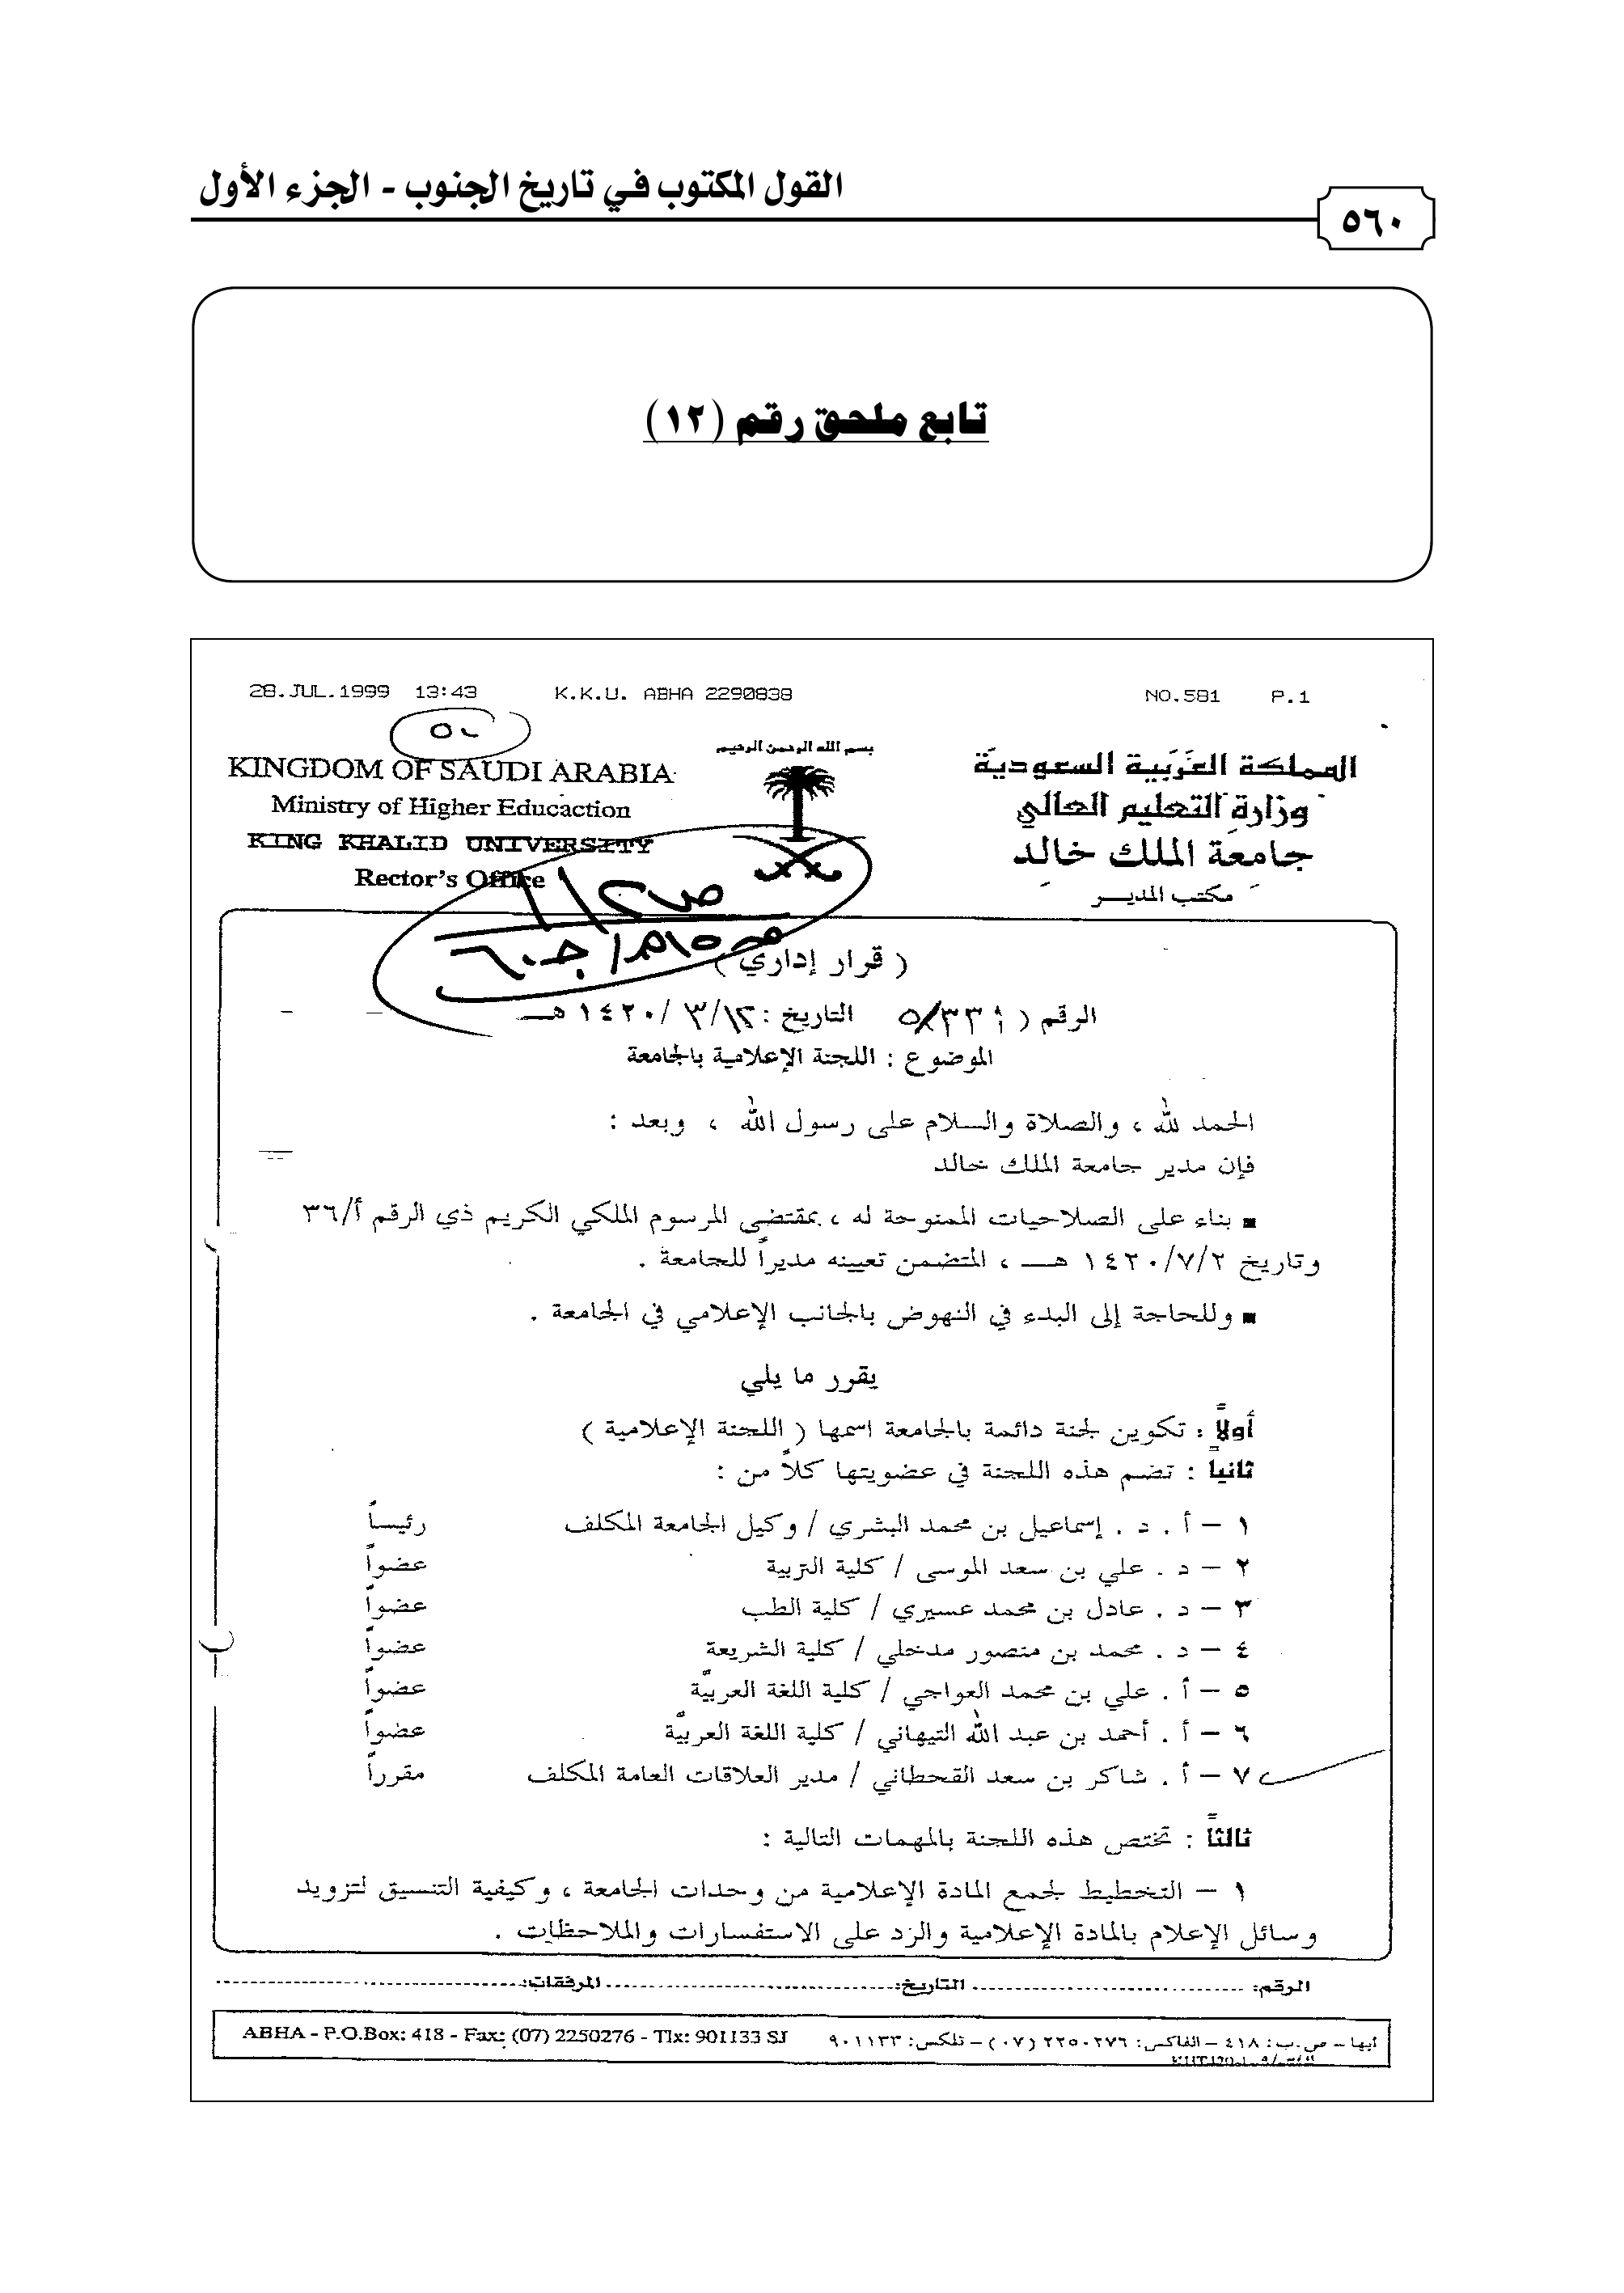 القول المكتوب في تاريخ الجنوب - الجزء الأول
٥٦٠
تابع ملحق رقم (١٢)
28.JUL.1999 13:43 K.K.U. ABHA 2290838 NO.581 P.1
بسم الله الرحمن الرحيم
المملكة العربية السعودية
وزارة التعليم العالي
جامعة الملك خالد
مكتب المدير
KINGDOM OF SAUDI ARABIA
Ministry of Higher Educaction
KING KHALID UNIVERSITY
Rector's Office
( قرار إداري )
الرقم ( التاريخ : ١٢/ ٣/ ١٤٢٠ هـ
الموضوع : اللجنة الإعلامية بالجامعة
الحمد لله ، والصلاة والسلام على رسول الله ، وبعد :
فإن مدير جامعة الملك خالد
▪ بناء على الصلاحيات الممنوحة له ، بمقتضى المرسوم الملكي الكريم ذي الرقم أ/٣٦
وتاريخ ١٤٢٠/٧/٢ هـ ، المتضمن تعيينه مديراً للجامعة .
▪ وللحاجة إلى البدء في النهوض بالجانب الإعلامي في الجامعة .
يقرر ما يلي
أولاً : تكوين لجنة دائمة بالجامعة اسمها ( اللجنة الإعلامية )
ثانياً : تضم هذه اللجنة في عضويتها كلاً من :
١ – أ . د . إسماعيل بن محمد البشري / وكيل الجامعة المكلف رئيساً
٢ – د . علي بن سعد الموسى / كلية التربية عضواً
٣ – د . عادل بن محمد عسيري / كلية الطب عضواً
٤ – د . محمد بن منصور مدخلي / كلية الشريعة عضواً
٥ – أ . علي بن محمد العواجي / كلية اللغة العربيّة عضواً
٦ – أ . أحمد بن عبد الله التيهاني / كلية اللغة العربيّة عضواً
٧ – أ . شاكر بن سعد القحطاني / مدير العلاقات العامة المكلف مقرراً
ثالثاً : تختص هذه اللجنة بالمهمات التالية :
١ – التخطيط لجمع المادة الإعلامية من وحدات الجامعة ، وكيفية التنسيق لتزويد
وسائل الإعلام بالمادة الإعلامية والرد على الاستفسارات والملاحظات .
الرقم: التاريخ: المرفقات:
ابها – ص.ب: ٤١٨ – الفاكس: ٢٢٥٠٢٧٦ (٠٧) – تلكس: ٩٠١١٣٣
ABHA - P.O.Box: 418 - Fax: (07) 2250276 - Tlx: 901133 SJ